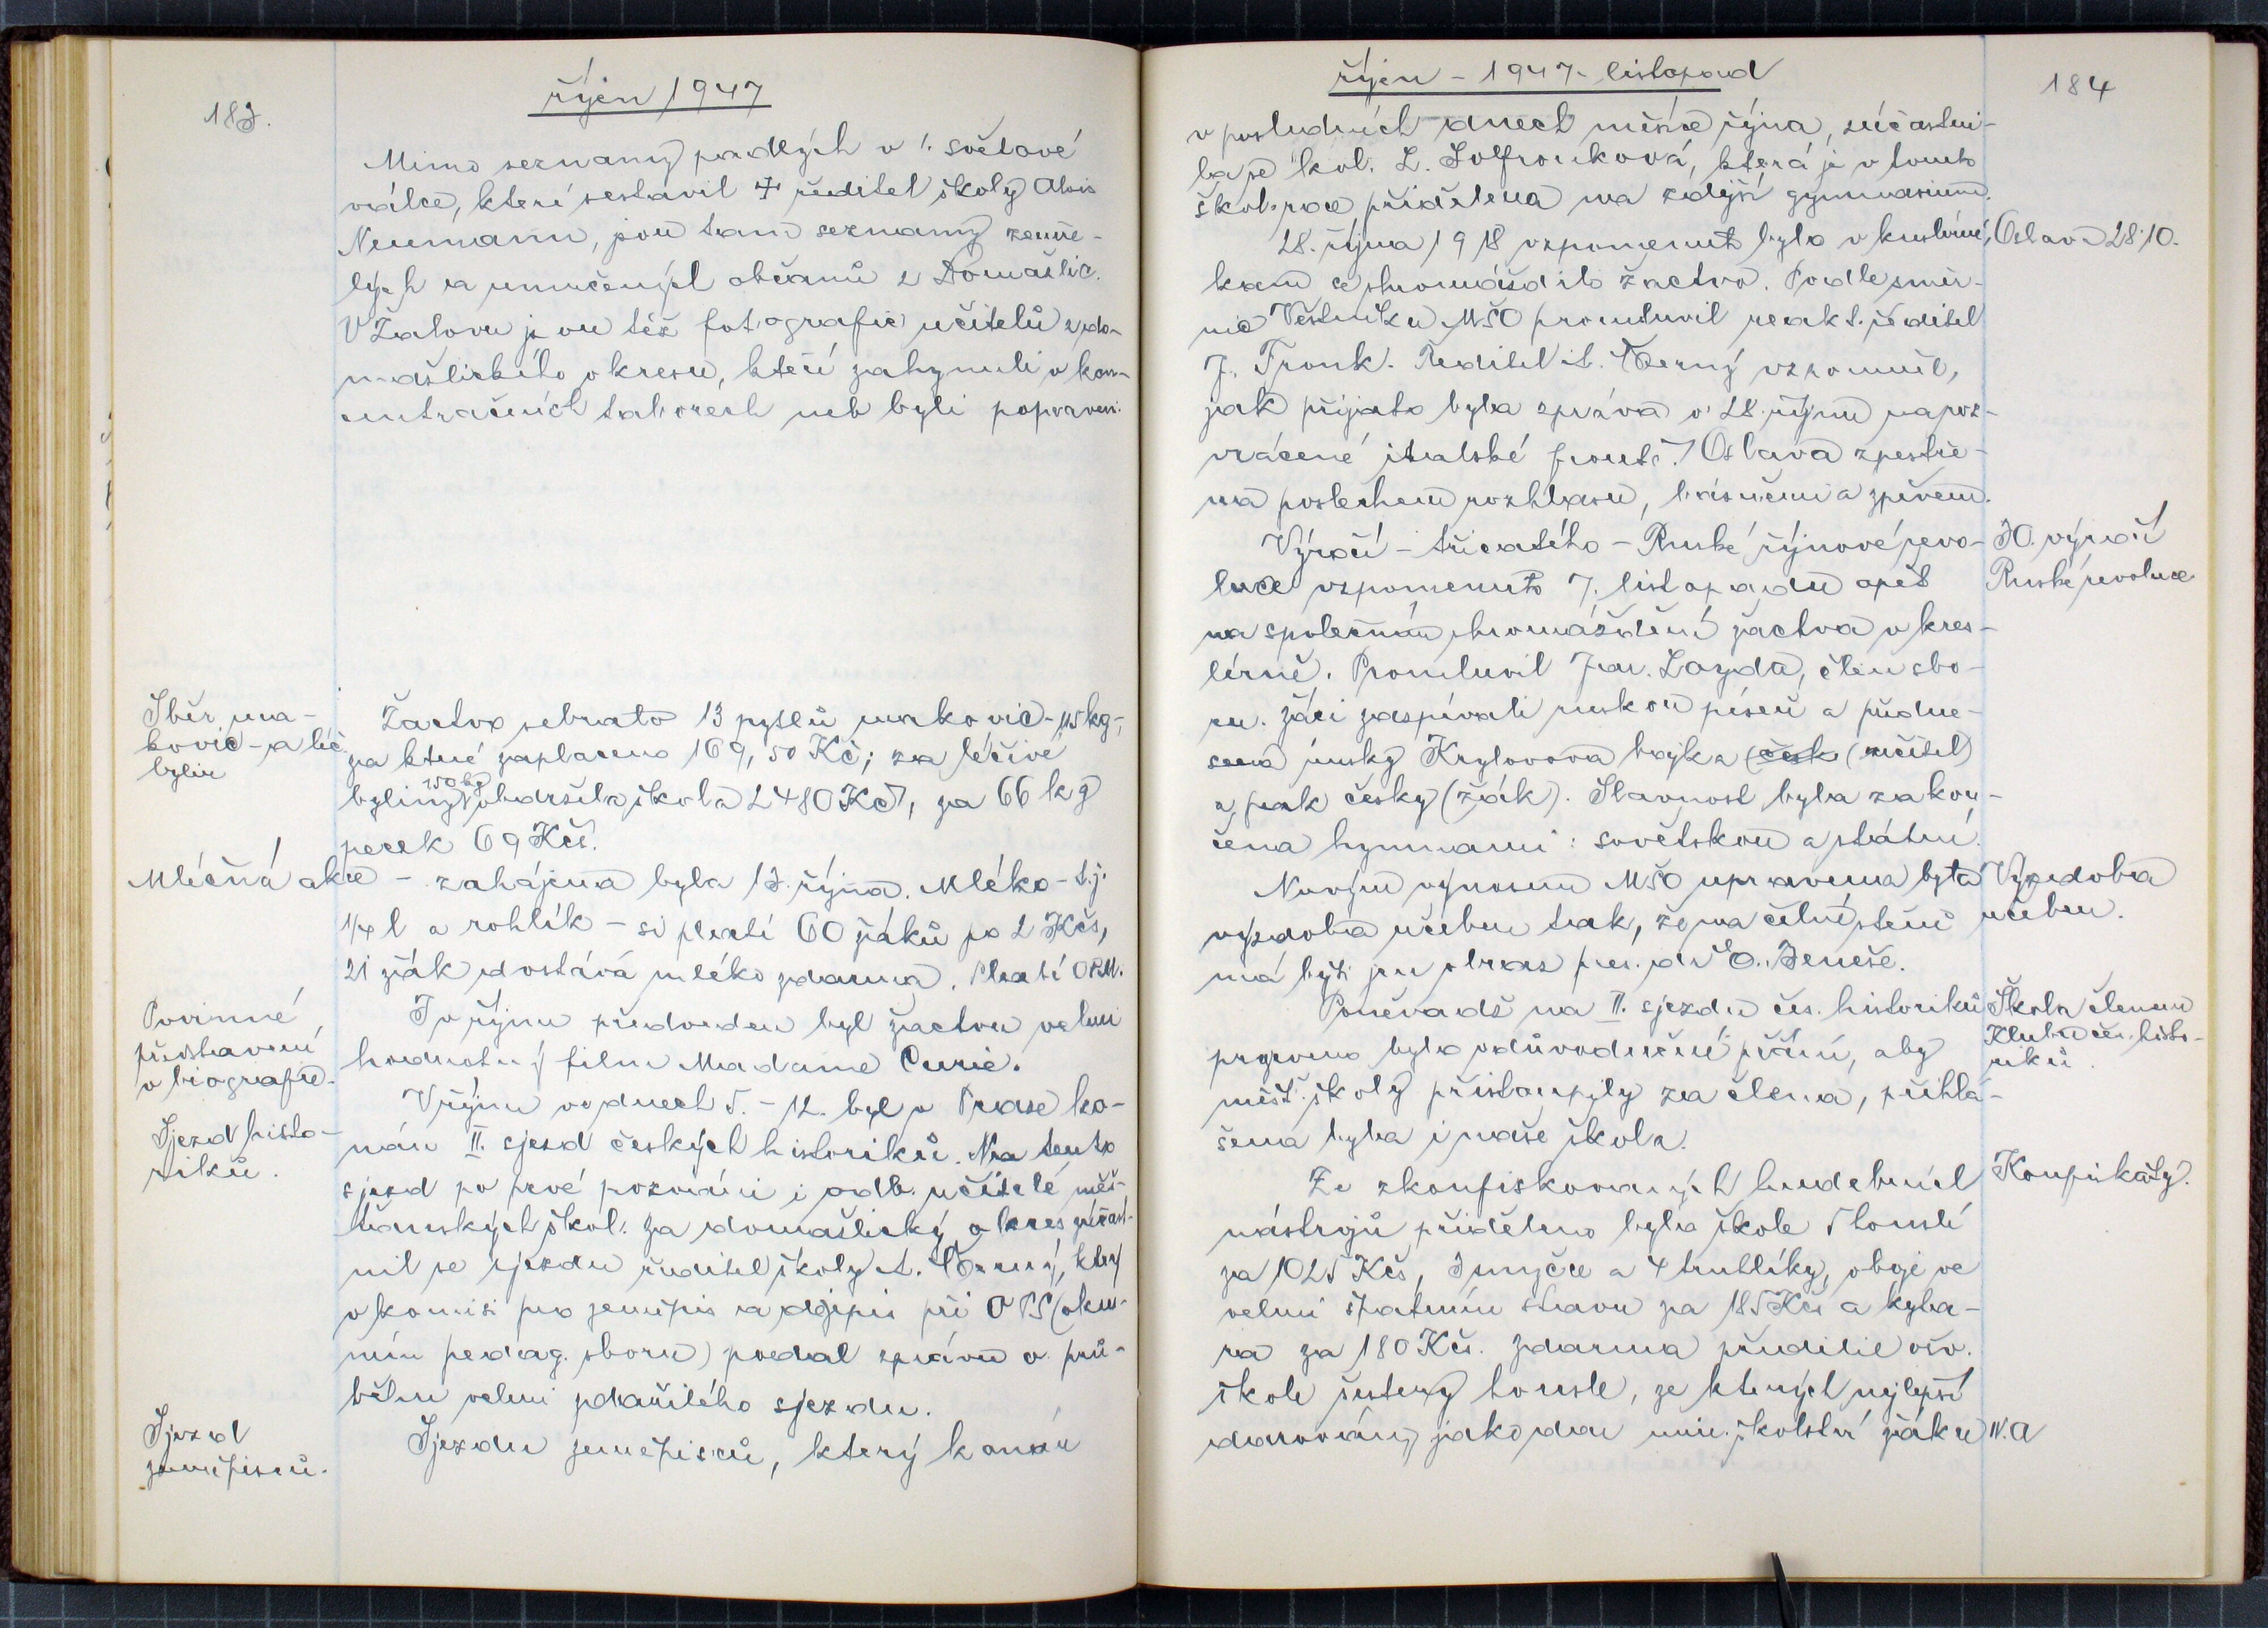 183.
říjen 1947
Mimo seznamy padlých v 1. světové
válce, které sestavil † ředitel školy Alois
Neumann, jsou tam seznamy zemře-
lých a umučených občanů z Domažlic.
V Žalovu jsou též fotografie učitelů z do-
mažlického okresu, kteří zahynuli v kon-
centračních táborech neb byli popraveni.
Sběr ma-
kovic - a léč.
bylin
Žactvo sebralo 13 pytlů makovic - 115 kg -,
za které zaplaceno 169,50 Kč; za léčivé
byliny 150 kg obdržela škola 2480 Kčs, za 66 kg
pecek 69 Kčs.
Mléčná akce - zahájena byla 13. října. Mléko - t.j.
1/4 l a rohlík - si platí 60 žáků po 2 Kčs,
21 žák dostává mléko zdarma. Platí OPM.
Povinné
představení
v biografu.
I v říjnu předveden byl žactvu velmi
hodnotný film Madame Curie.
Sjezd histo-
riků.
V říjnu ve dnech 5. - 12. byl v Praze ko-
nán II. sjezd českých historiků. Na tento
sjezd po prvé pozváni i odb. učitelé měš-
ťanských škol. Za domažlický okres zúčast-
nil se sjezdu ředitel školy t. Černý, který
v komisi pro zeměpis a dějepis při OPS (okres-
ním pedag. sboru) podal zprávu o prů-
běhu velmi zdařilého sjezdu.
Sjezd
zeměpisců.
Sjezdu zeměpisců, který konán
říjen - 1947 - listopad
184
v posledních dnech měsíce října, zúčastni-
la se kol. L. Soffronková, která je v tomto
škol. roce přidělena na zdejší gymnasium.
28. října 1918 vzpomenuto bylo v kreslírně,
Oslava 28.10.
kam se shromáždilo žactvo. Podle směr-
nic Věstníku MŠO promluvil reakt. ředitel
J. Fronk. Ředitel t. Černý vzpomněl,
jak přijata byla zpráva o 28. říjnu na roz-
vrácené italské frontě. Oslava zpestře-
na poslechem rozhlasu, básněmi a zpěvem.
Výročí - třicátého - Ruské říjnové revo-
30. výročí
Ruské revoluce
luce vzpomenuto 7. listopadu opět
na společném shromáždění žactva v kres-
lírně. Promluvil Jar. Lazda, člen sbo-
ru. žáci zaspívali ruskou píseň a předne-
sena rusky Krylovova bajka (česk (učitel)
a pak česky (žák). Slavnost byla zakon-
čena hymnami: sovětskou a státní.
Novým výnosem MŠO upravena byla
Výzdoba
učeben.
výzdoba učeben tak, že na čelní stěně
má býti jen obraz pres. dr E. Beneše.
Poněvadž na II. sjezdu čes. historiků
Škola členem
Klubu čes. histo-
riků.
projeveno bylo odůvodněné přání, aby
měšť. školy přistoupily za člena, přihlá-
šena byla i naše škola.
Ze zkonfiskovaných hudebních
Konfiskáty.
nástrojů přiděleno bylo škole 5 houslí
za 1025 Kčs, 3 smyčce a 4 truhlíky, oboje ve
velmi špatném stavu za 185 Kčs a kyta-
ra za 180 Kčs. zdarma přidělil ošv.
škole šestery housle, ze kterých nejlepší
darovány jako dar min. školství žáku IV.A